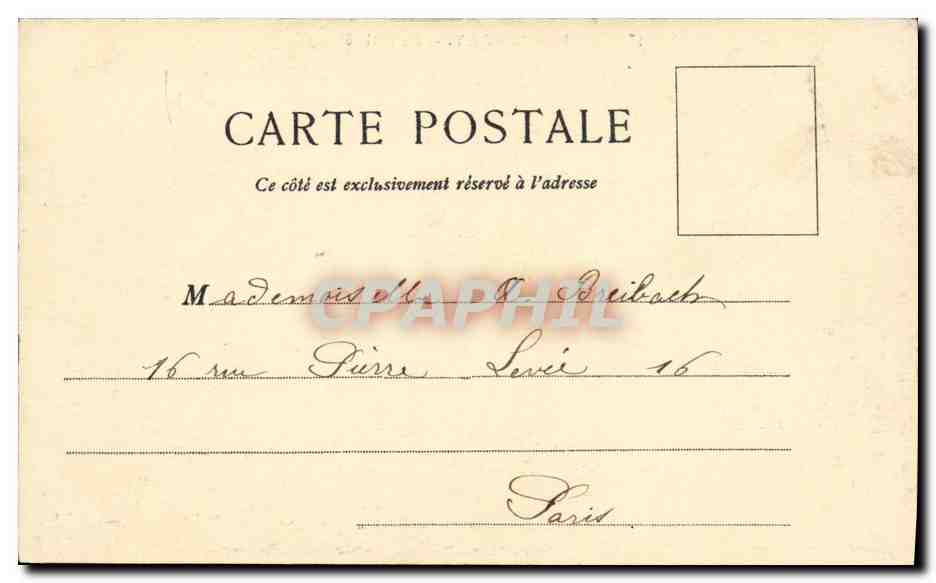 CARTE POSTALE
Ce côté est exclusivement réservé à l'adresse
Mademoiselle A. Breibach
CPAPHIL
16 rue Pierre Levée 16
Paris